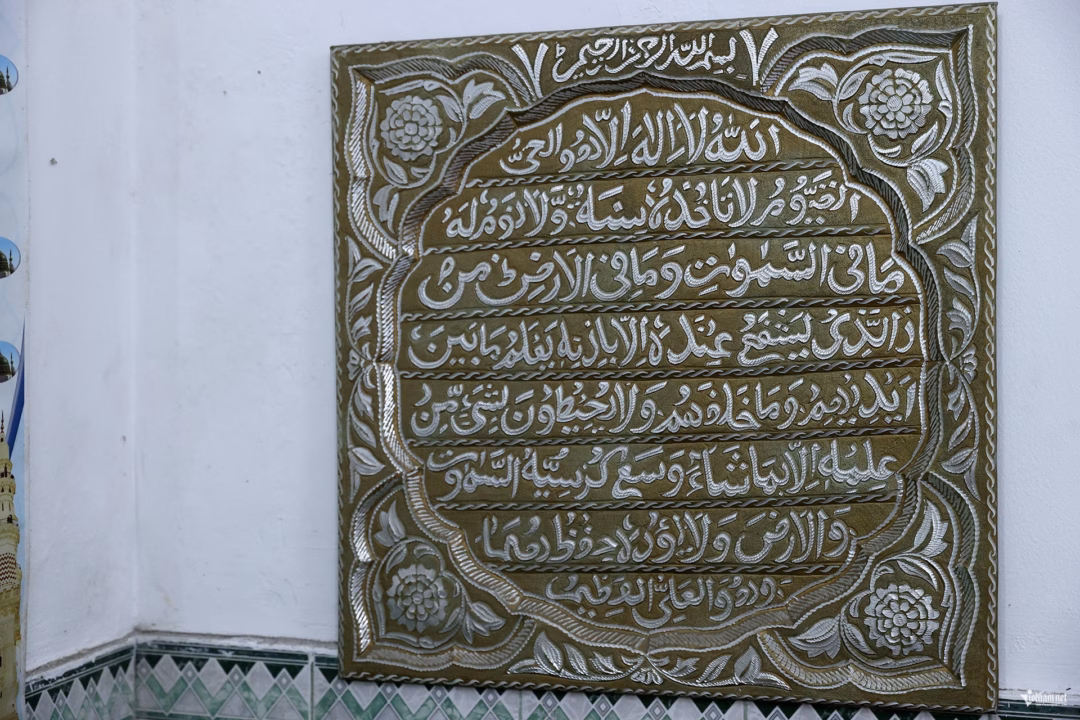 بسم الله الرحمن الرحيم
الله لا اله الا هو الحي
القيوم لا تاخذه سنة ولا نوم له
ما في السموت وما في الارض من
ذا لذي يشفع عنده الا باذنه يعلم ما بين
ايديهم وما خلفهم ولا يحيطون بشيء من
علمه الا بما شاء وسع كرسيه السموت
والارض ولا يؤده حفظهما
وهو العلي العظيم
totham.net